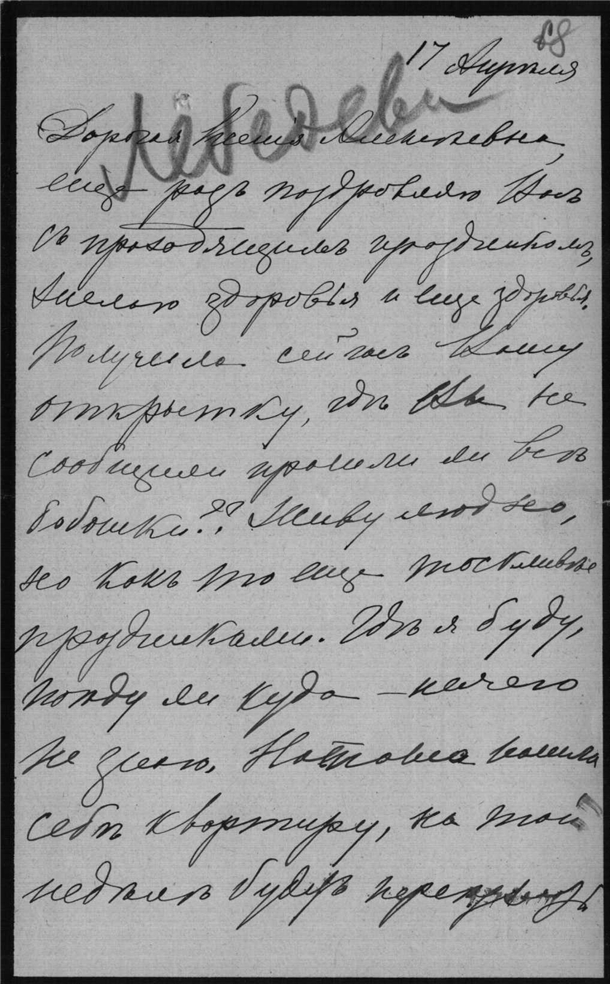 68
17 Апреля
Лебедева
Дорогая Ксенія Алексѣевна,
еще разъ поздровляю Васъ
съ проходящимъ праздникомъ,
желаю здоровья и еще здоровья.
Получила сейчасъ Вашу
открытку, гдѣ Вы не
сообщили прошли ли всѣ
бобошки?? Живу людно,
но какъ то еще тоскливѣе
праздниками. Гдѣ я буду,
поѣду ли куда – ничего
не знаю. Наташа нашла
себѣ квартиру, на той
недѣлѣ будетъ